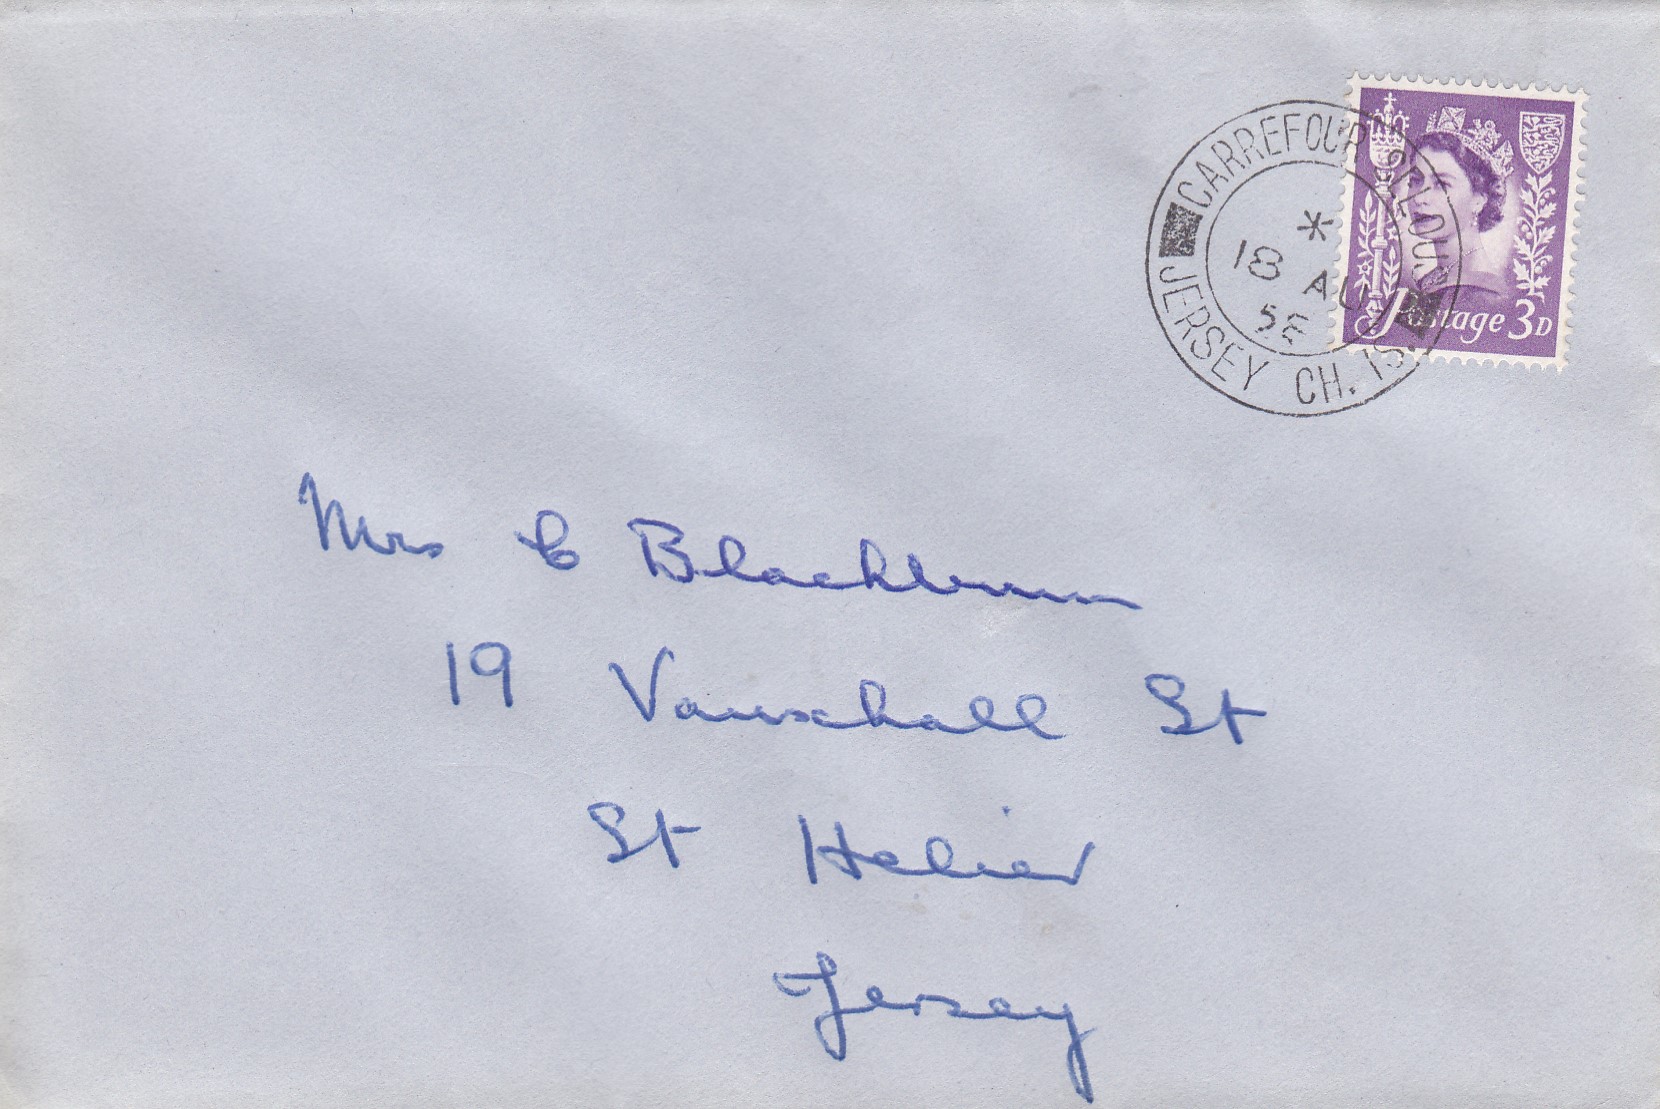 CARREFOUR SELOUS
JERSEY CH. IS.
*
18 AU
58
Postage 3D
Mrs C Blackburn
19 Vauxhall St
St Helier
Jersey